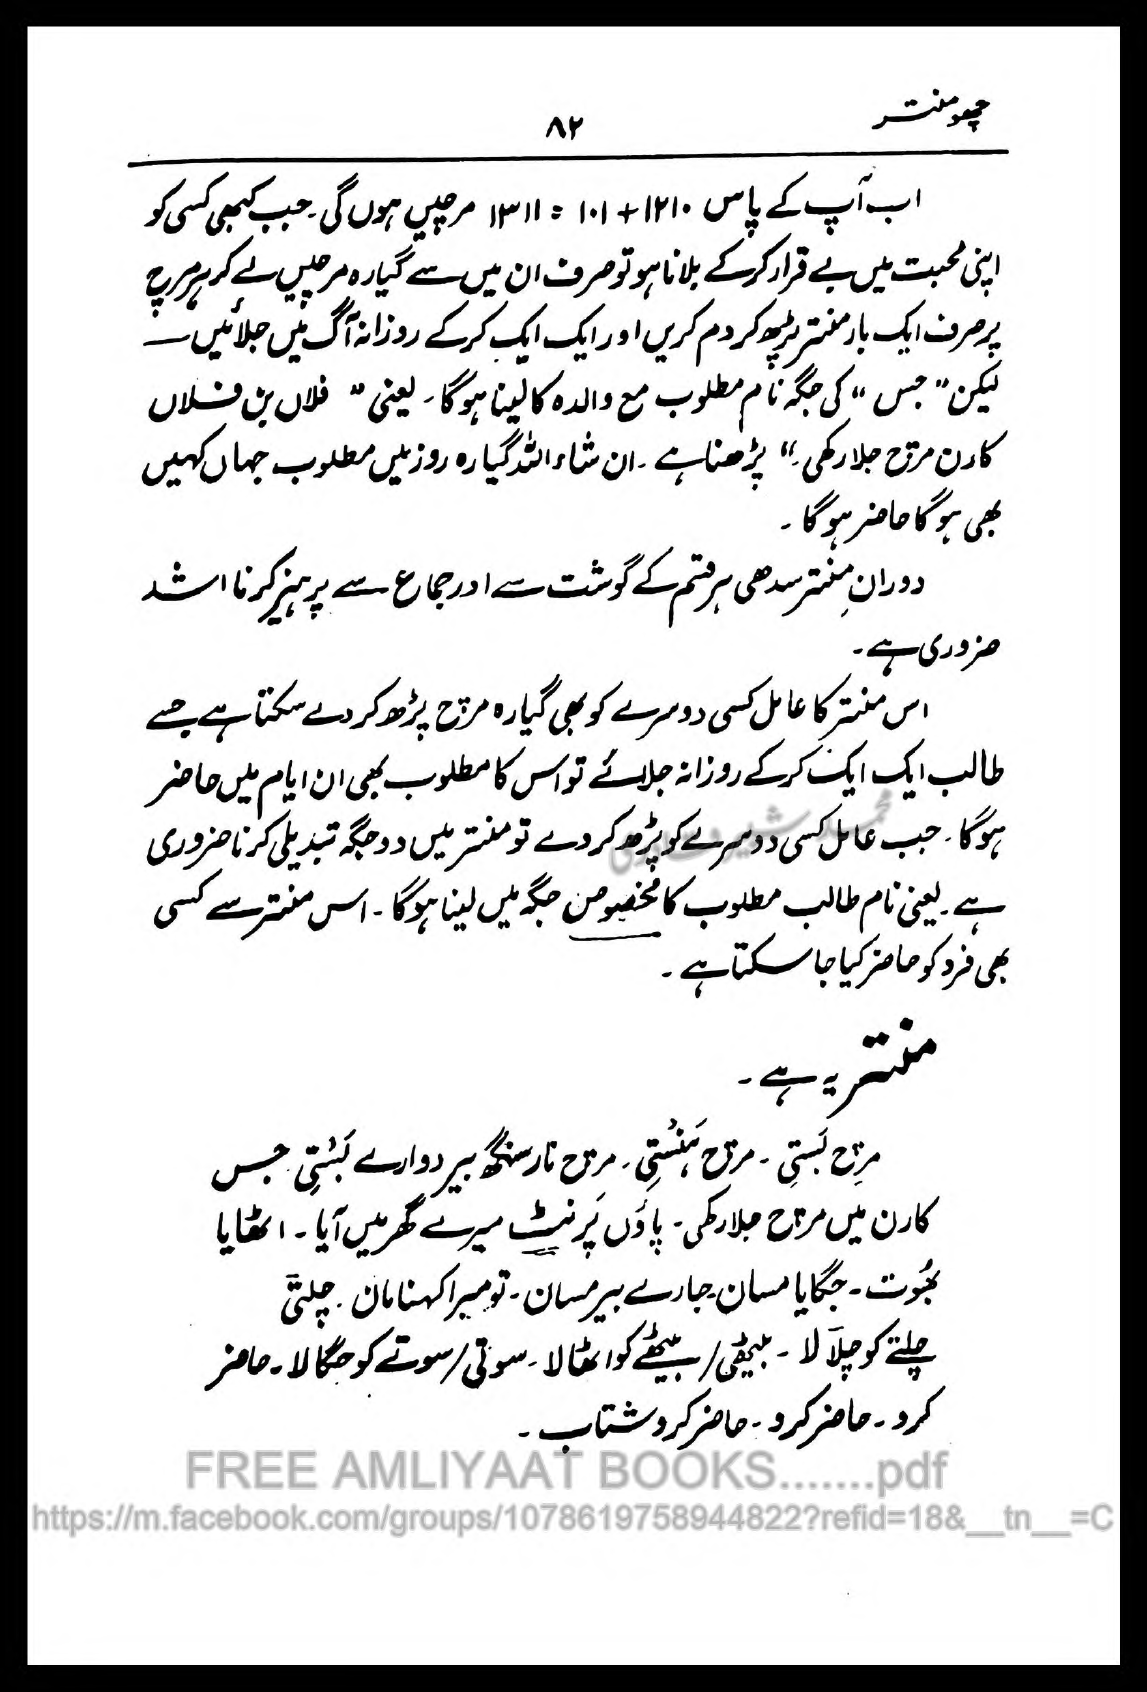 چھو منتر
۸۲
اب آپ کے پاس ۱۲۱۰ + ۱۰۱ = ۱۳۱۱ مرچیں ہوں گی۔ جب کبھی کسی کو
اپنی محبت میں بے قرار کر کے بلانا ہو تو صرف ان میں سے گیارہ مرچیں لے کر ہر مرچ
پر صرف ایک بار منتر پڑھ کر دم کریں اور ایک ایک کر کے روزانہ آگ میں جلائیں —
لیکن "جس" کی جگہ نام مطلوب مع والدہ کا لینا ہو گا۔ یعنی " فلاں بن فلاں
کارن مرچ جلا رکھی۔" پڑھنا ہے۔ ان شاء اللہ گیارہ روز میں مطلوب جہاں کہیں
بھی ہو گا حاضر ہو گا۔
دورانِ منتر سدھی ہر قسم کے گوشت سے اور جماع سے پرہیز کرنا اشد
ضروری ہے۔
اس منتر کا عامل کسی دوسرے کو بھی گیارہ مرچ پڑھ کر دے سکتا ہے جسے
طالب ایک ایک کر کے روزانہ جلائے تو اس کا مطلوب بھی ان ایام میں حاضر
ہو گا۔ جب عامل کسی دوسرے کو پڑھ کر دے تو منتر میں دو جگہ تبدیلی کرنا ضروری
ہے۔ یعنی نام طالب مطلوب کا مخصوص جگہ میں لینا ہو گا۔ اس منتر سے کسی
بھی فرد کو حاضر کیا جا سکتا ہے۔
منتر یہ ہے۔
مرچ بَستِی۔ مرچ ہَنْستِی۔ مرچ نارسنگھ بیر دوارے بَسْتِی۔ جس
کارن میں مرچ جلا رکھی۔ پاؤں پَرنٹ میرے گھر میں آیا۔ اٹھایا
بھُوت۔ جگایا مسان۔ جا رے بیر مسان۔ تو میرا کہنا مان۔ چلتی
چلتے کو چلَا لا۔ بیٹھی/بیٹھے کو اٹھا لا۔ سوتی/سوتے کو جگا لا۔ حاضر
کرد۔ حاضر کرد۔ حاضر کرد شتاب۔
FREE AMLIYAAT BOOKS.......pdf
https://m.facebook.com/groups/1078619758944822?refid=18&__tn__=C